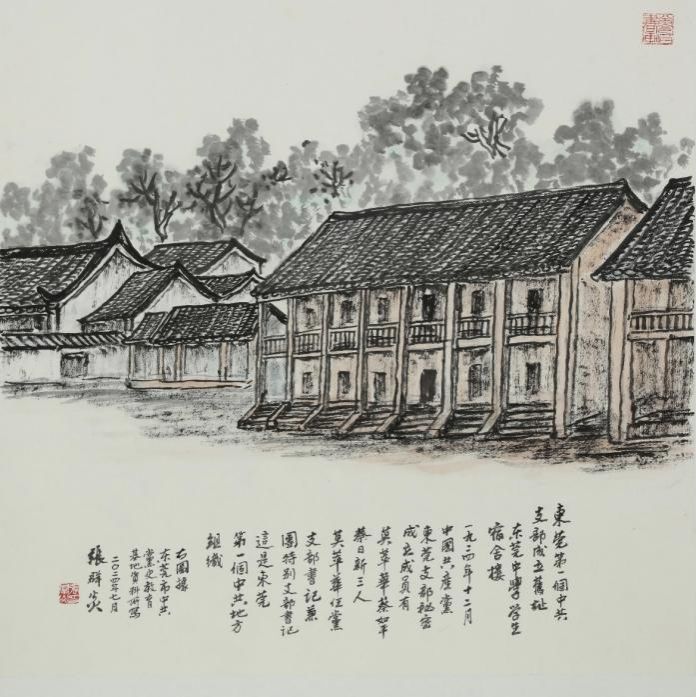 東莞第一個中共
支部成立舊址
东莞中學学生
宿舍楼
一九二四年十二月
中國共産黨
東莞支部秘密
成立成員有
莫萃華蔡如平
蔡日新三人
莫萃華任黨
支部書记兼
團特别支部書记
這是东莞
第一個中共地方
组織
右圖據
东莞市中共
黨史教育
基地資料所寫
二〇二四年七月
張群炎